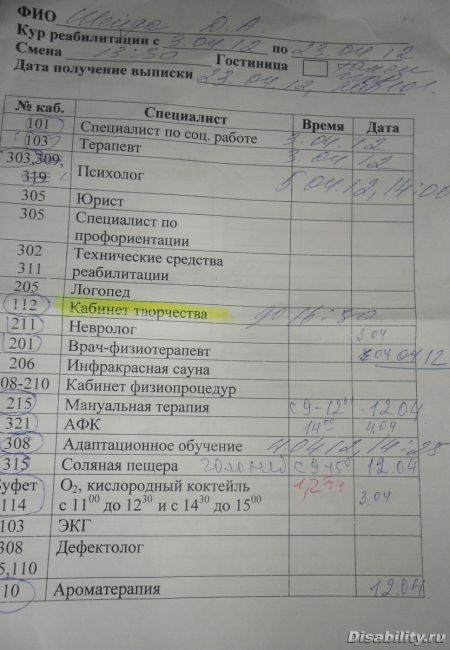 ФИО Д. А
Кур реабилитации с 3.04.12 по 23.04.12
Смена 13:30 Гостиница
Дата получение выписки 23.04.12,
№ каб. Специалист Время Дата
101 Специалист по соц. работе 3.04.12
103 Терапевт 3.04.12
303,309, 319 Психолог 5.04.12, 14:00
305 Юрист
305 Специалист по профориентации
302 311 Технические средства реабилитации
205 Логопед
112 Кабинет творчества до 16:30
211 Невролог 3.04
201 Врач-физиотерапевт 04.04 12
206 Инфракрасная сауна
08-210 Кабинет физиопроцедур
215 Мануальная терапия с 9-12⁰⁰ 12.04
321 АФК 14⁰⁰ 4.04
308 Адаптационное обучение 4.04.12, 14:25
315 Соляная пещера с 9-15⁰⁰ 12.04
Буфет 114 О₂, кислородный коктейль с 11⁰⁰ до 12³⁰ и с 14³⁰ до 15⁰⁰ 3.04
103 ЭКГ
308 5,110 Дефектолог
10 Ароматерапия 12.04
Disability.ru